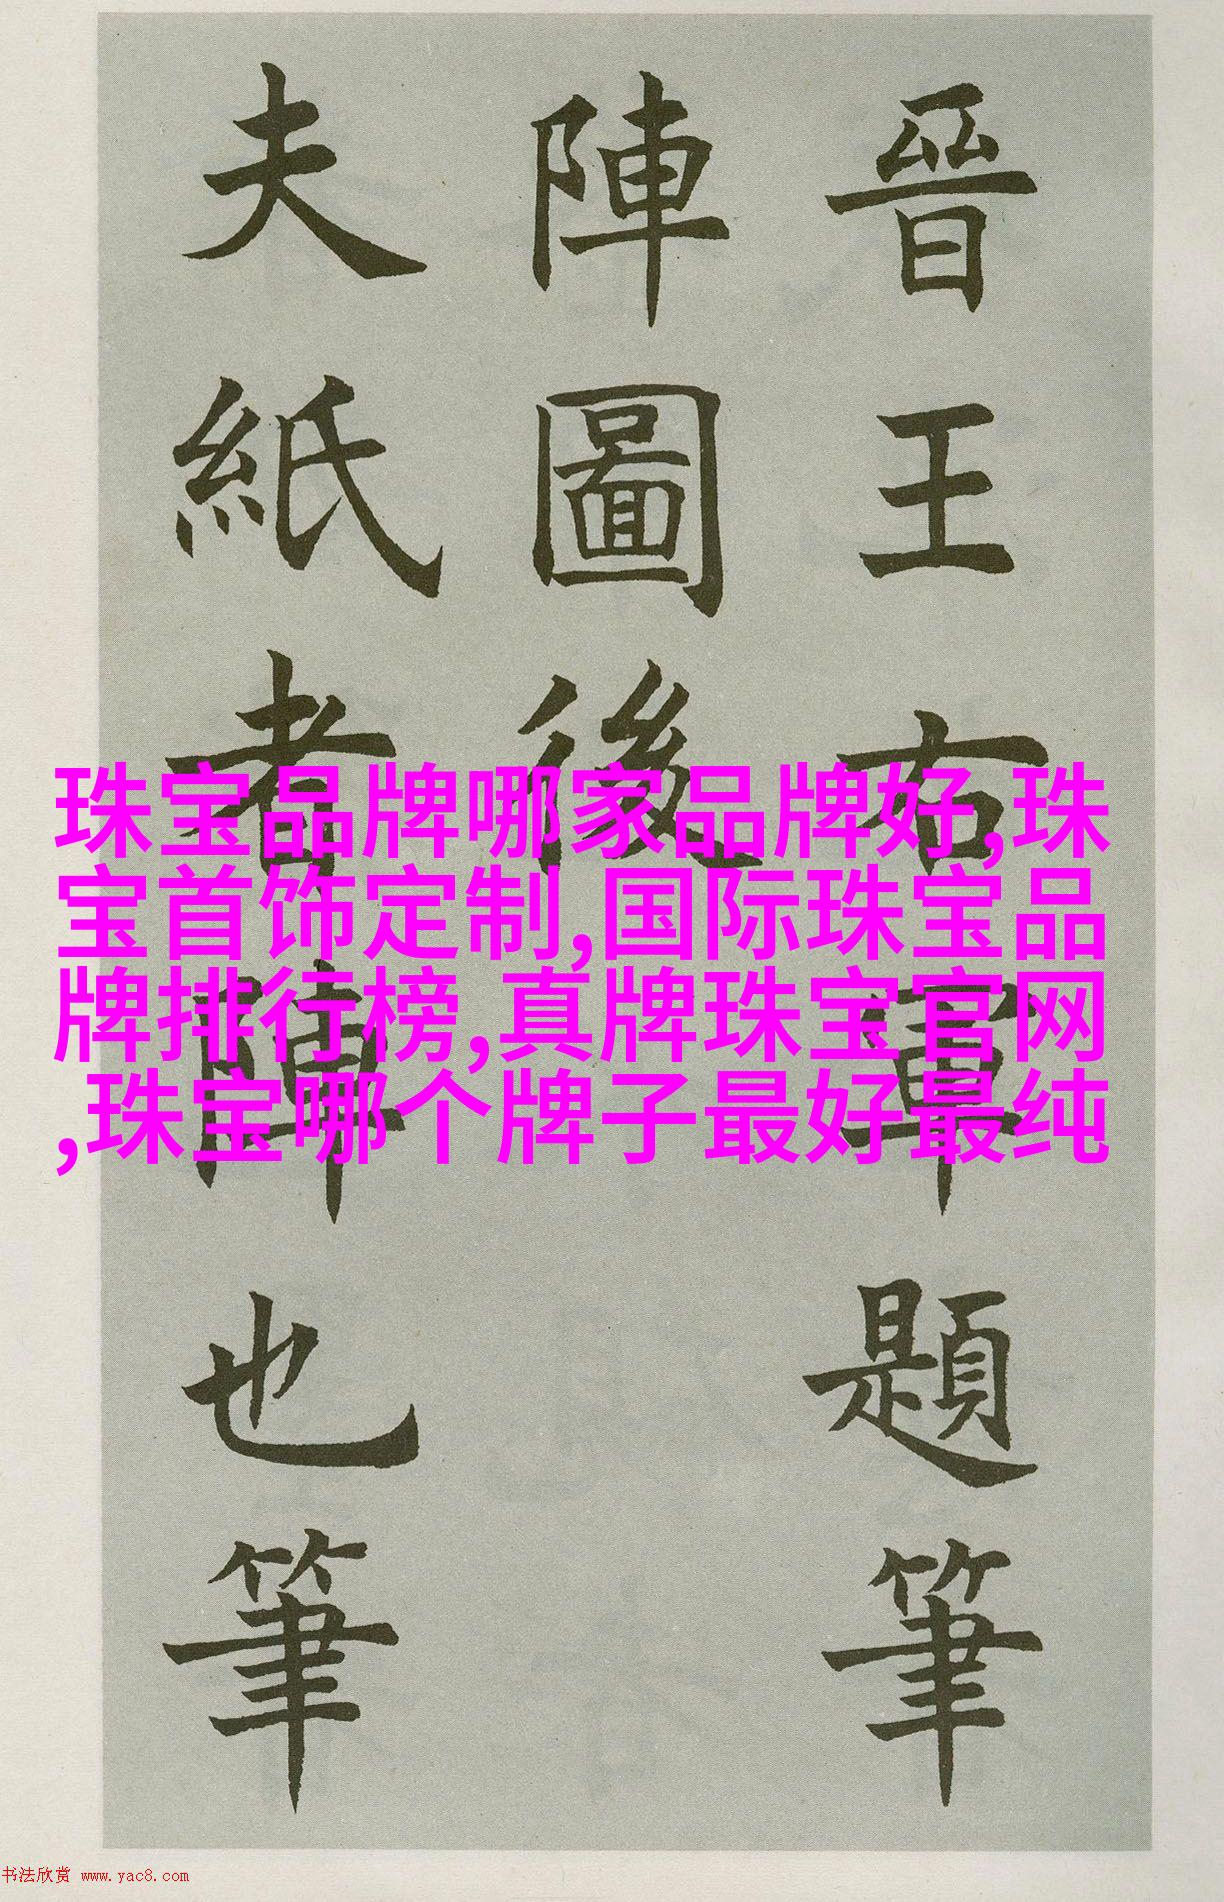 晉王右軍題筆
陣圖後
夫紙者陣也筆
珠宝品牌哪家品牌好,珠
宝首饰定制,国际珠宝品
牌排行榜,真牌珠宝官网
,珠宝哪个牌子最好最纯
书法欣赏 www.yac8.com